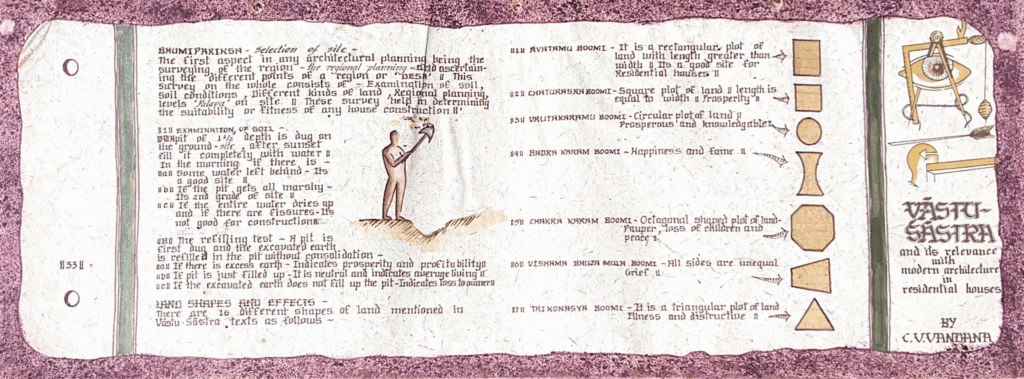 BHUMIPARIKSA - Selection of site -
The first aspect in any architectural planning being the
surveying of the region - the regional planning - and ascertain-
ing the different points of a region or "DESA" || This
survey on the whole consists of - Examination of soil,
soil conditions - Different kinds of land Regional planning,
levels on site || These survey help in determining
the suitability or fitness of any house construction ||
||1|| EXAMINATION OF SOIL -
pit of 1½ depth is dug on
the ground - site after sunset
fill it completely with water ||
In the morning if there is -
||a|| Some water left behind - Its
a good site ||
||b|| If the pit gets all marshy -
Its 2nd grade of site ||
||c|| If the entire water dries up
and if there are fissures - Its
not good for construction
The refilling test - A pit is
first dug and the excavated earth
is refilled in the pit without consolidation -
||a|| If there is excess earth - Indicates prosperity and profitability
||b|| If pit is just filled up - It is neutral and indicates average living ||
||c|| If the excavated earth does not fill up the pit - Indicates loss to owner ||
LAND SHAPES AND EFFECTS -
There are 16 different shapes of land mentioned in
Vastu-Sāstra texts as follows -
||53||
||1|| AYATAMU BOOMI - It is a rectangular plot of
land with length greater than
width || Its a good site for
Residential houses ||
||2|| CHATURASRA BOOMI - Square plot of land || length is
equal to width || Prosperity ||
||3|| VRUTAKARAMU BOOMI - Circular plot of land ||
Prosperous and knowledgable
||4|| BADRA KARAM BOOMI - Happiness and fame ||
||5|| CHAKRA KARAM BOOMI - Octogonal shaped plot of land-
Pauper, loss of children and
peace ||
||6|| VISHAMA BHUJA MULA BOOMI - All sides are unequal
Grief ||
||7|| TRIKONASYA BOOMI - It is a triangular plot of land
Illness and distructive ||
VĀSTU-
SĀSTRA
and its relevance
with
modern architecture
in
residential houses
BY
C.V.VANDANA